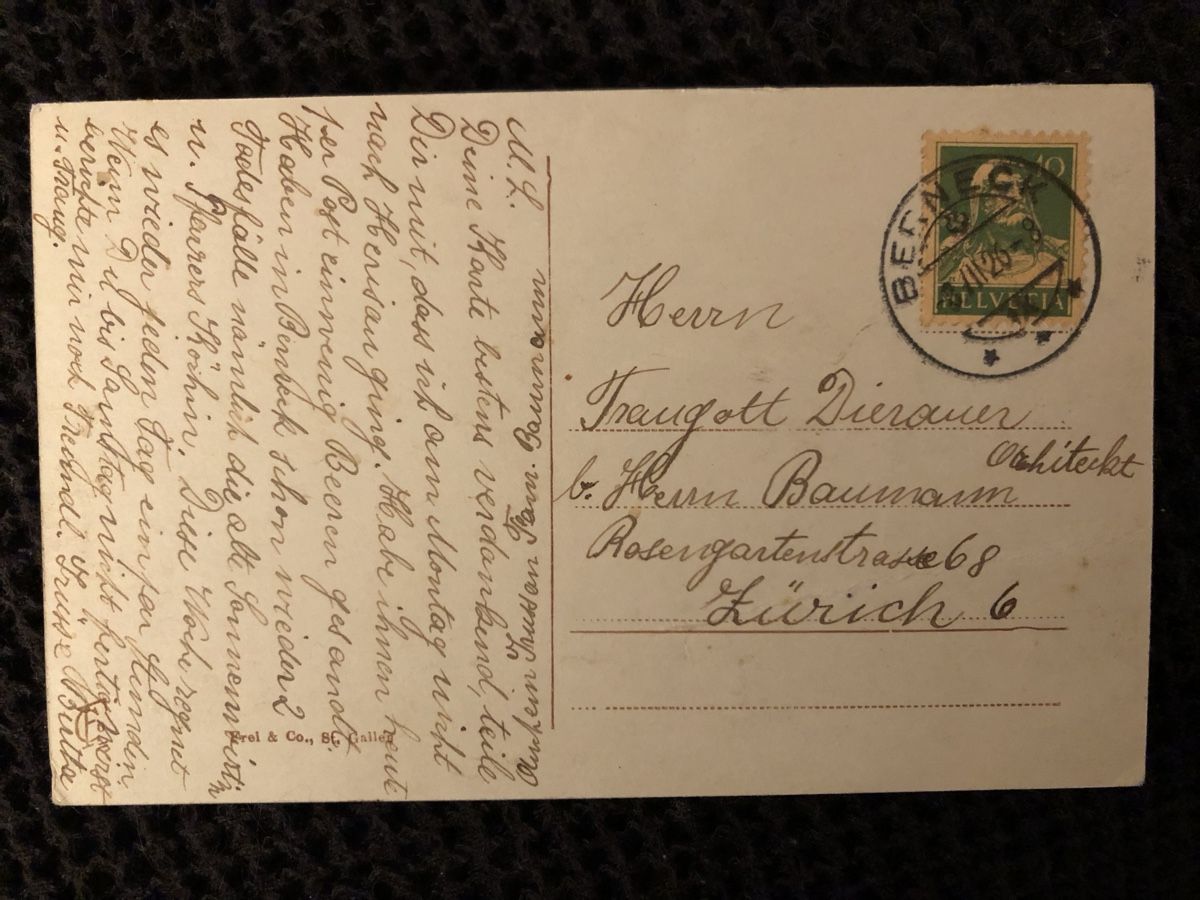 M. L.
Deine Karte bestens verdankend, teile
Dir mit, dass ich am Montag nicht
nach Herisau ging. Habe ihnen heute
per Post ein wenig Beeren gesandt.
Haben in Berneck schon wieder 2
Todesfälle nämlich die alte Sonnenwirtin
u. Pfarrers Köchin. Diese Woche regnet
es wieder jeden Tag ein par Stunden.
Wenn Du bis Samstag nicht fertig
berichte mir noch Freundl. Grüsse
u. Traug.
Frei & Co., St. Gallen
Herrn
Traugott Dierauer
Architeckt
b. Herrn Baumann
Rosengartenstrasse 68
Zürich 6
10
HELVETIA
BERNECK